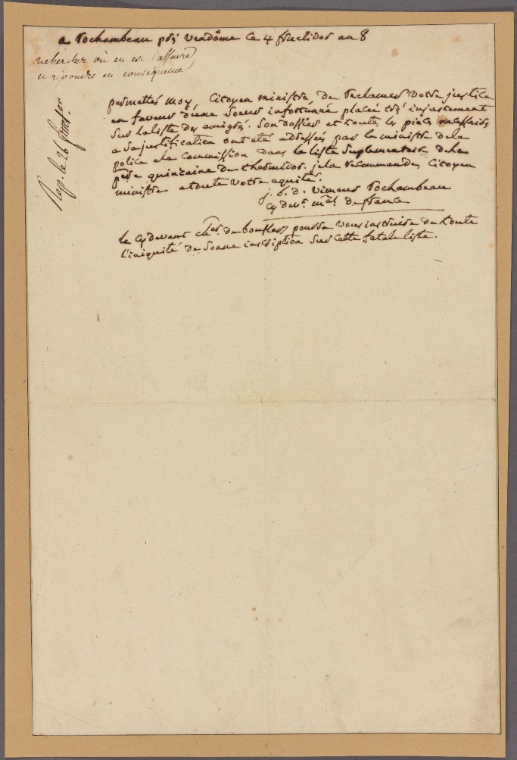 a Rochambeau prés vendôme le 4 fructidor an 8
rechercher où en est l'affaire,
et répondre en conséquence
Rep. le 26 fruct.or
permettes moy, Citoyen ministre, de reclamer votre justice
en faveur d'une soeur infortunée placée très injustement
sur la liste des emigrés. Son dossier et toutes les pieces necessaires
a sa justification ont été adressés par le ministre de la
police a la Commission dans la liste suplementaire de la
p.ere quinzaine de thermidor. je la recommande, Citoyen
ministre a toute votre equité.
j. b. d. vimeur Rochambeau
cy dev.t m.al de france
le cy devant ch.er de boufflers pourra vous instruire de toute
l'iniquité de son inscription sur cette fatale liste.